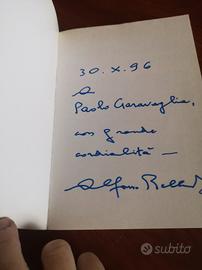 30.X.96
a
Paolo Garavaglia,
con grande
cordialità —
Alfonso
subito